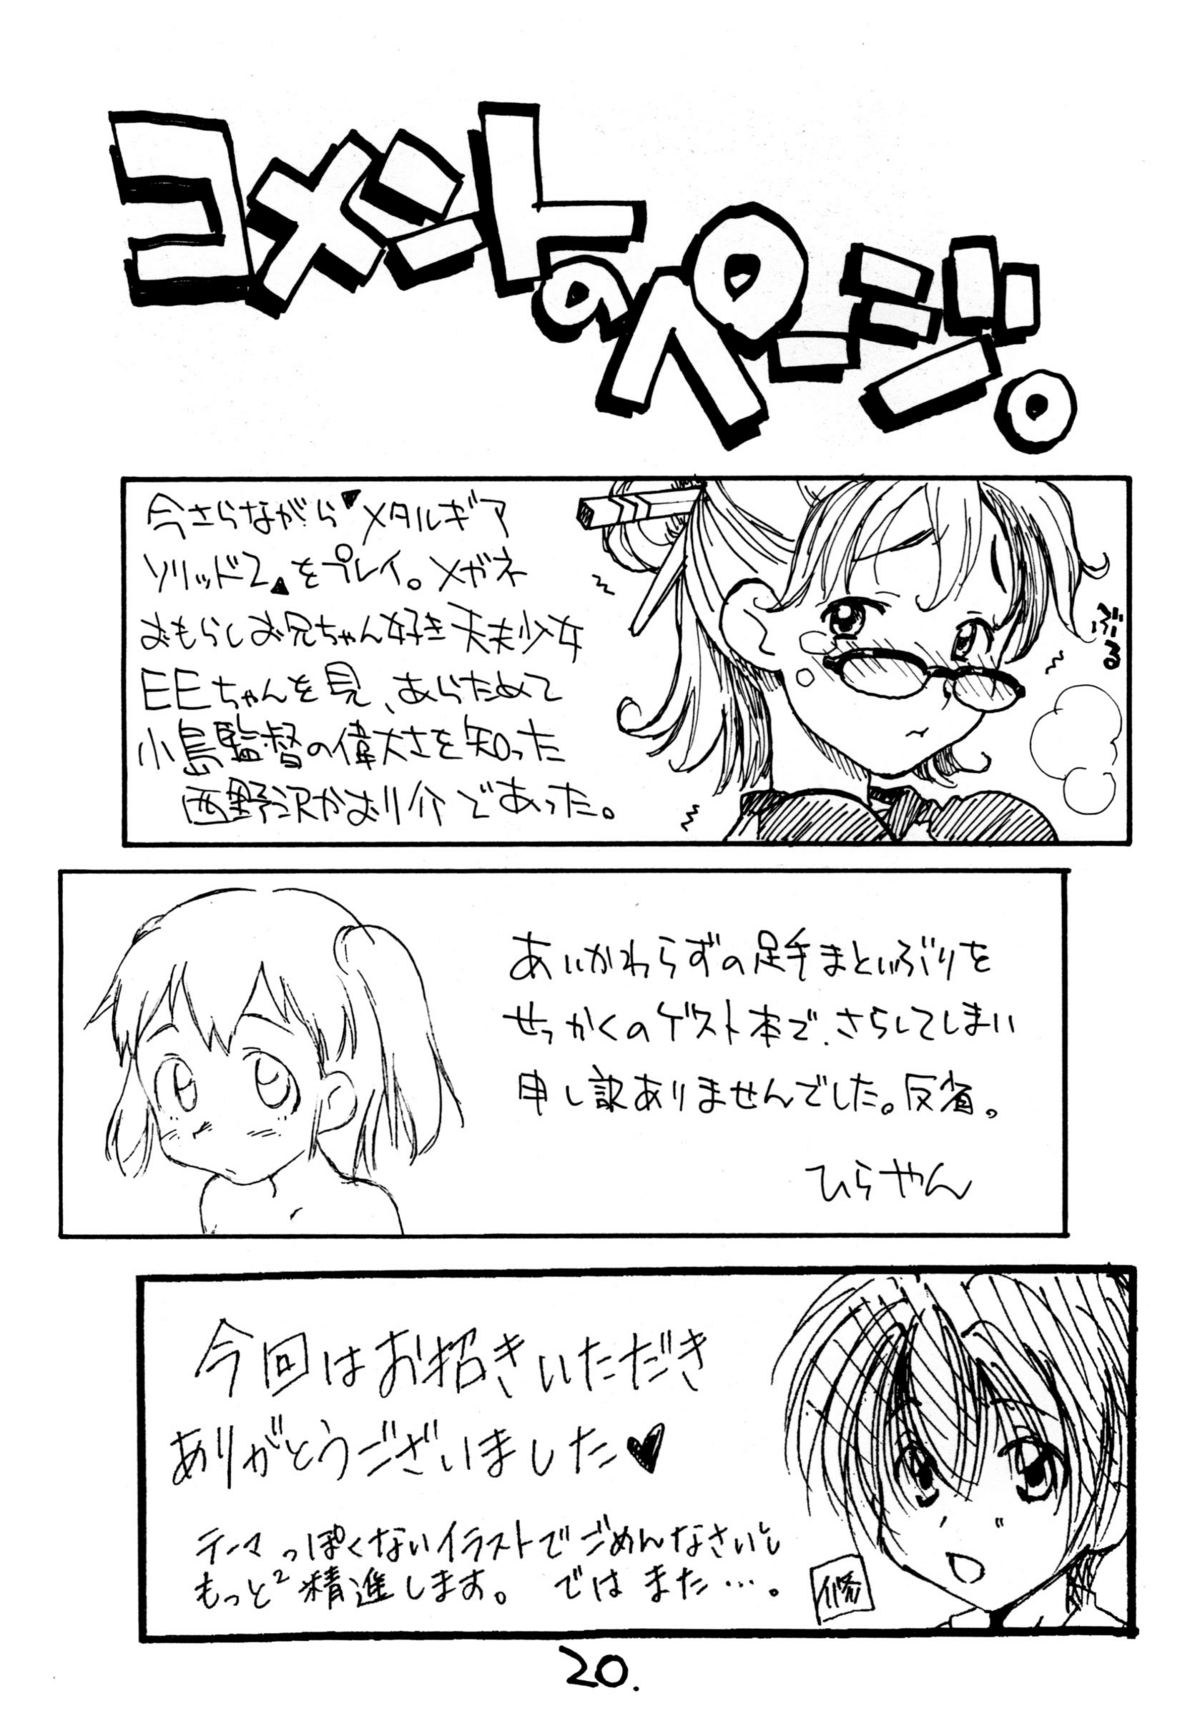 コメントのページ。
今さらながら「メタルギア
ソリッド2」をプレイ。メガネ
おもらしお兄ちゃん好き天才少女
EEちゃんを見、あらためて
小島監督の偉大さを知った
西野沢かおり介であった。
ぶる
あいかわらずの足手まといぶりを
せっかくのゲスト本で、さらしてしまい
申し訳ありませんでした。反省。
ひらやん
今回はお招きいただき
ありがとうございました♥
テーマっぽくないイラストでごめんなさい
もっと²精進します。 ではまた…。
修
20.